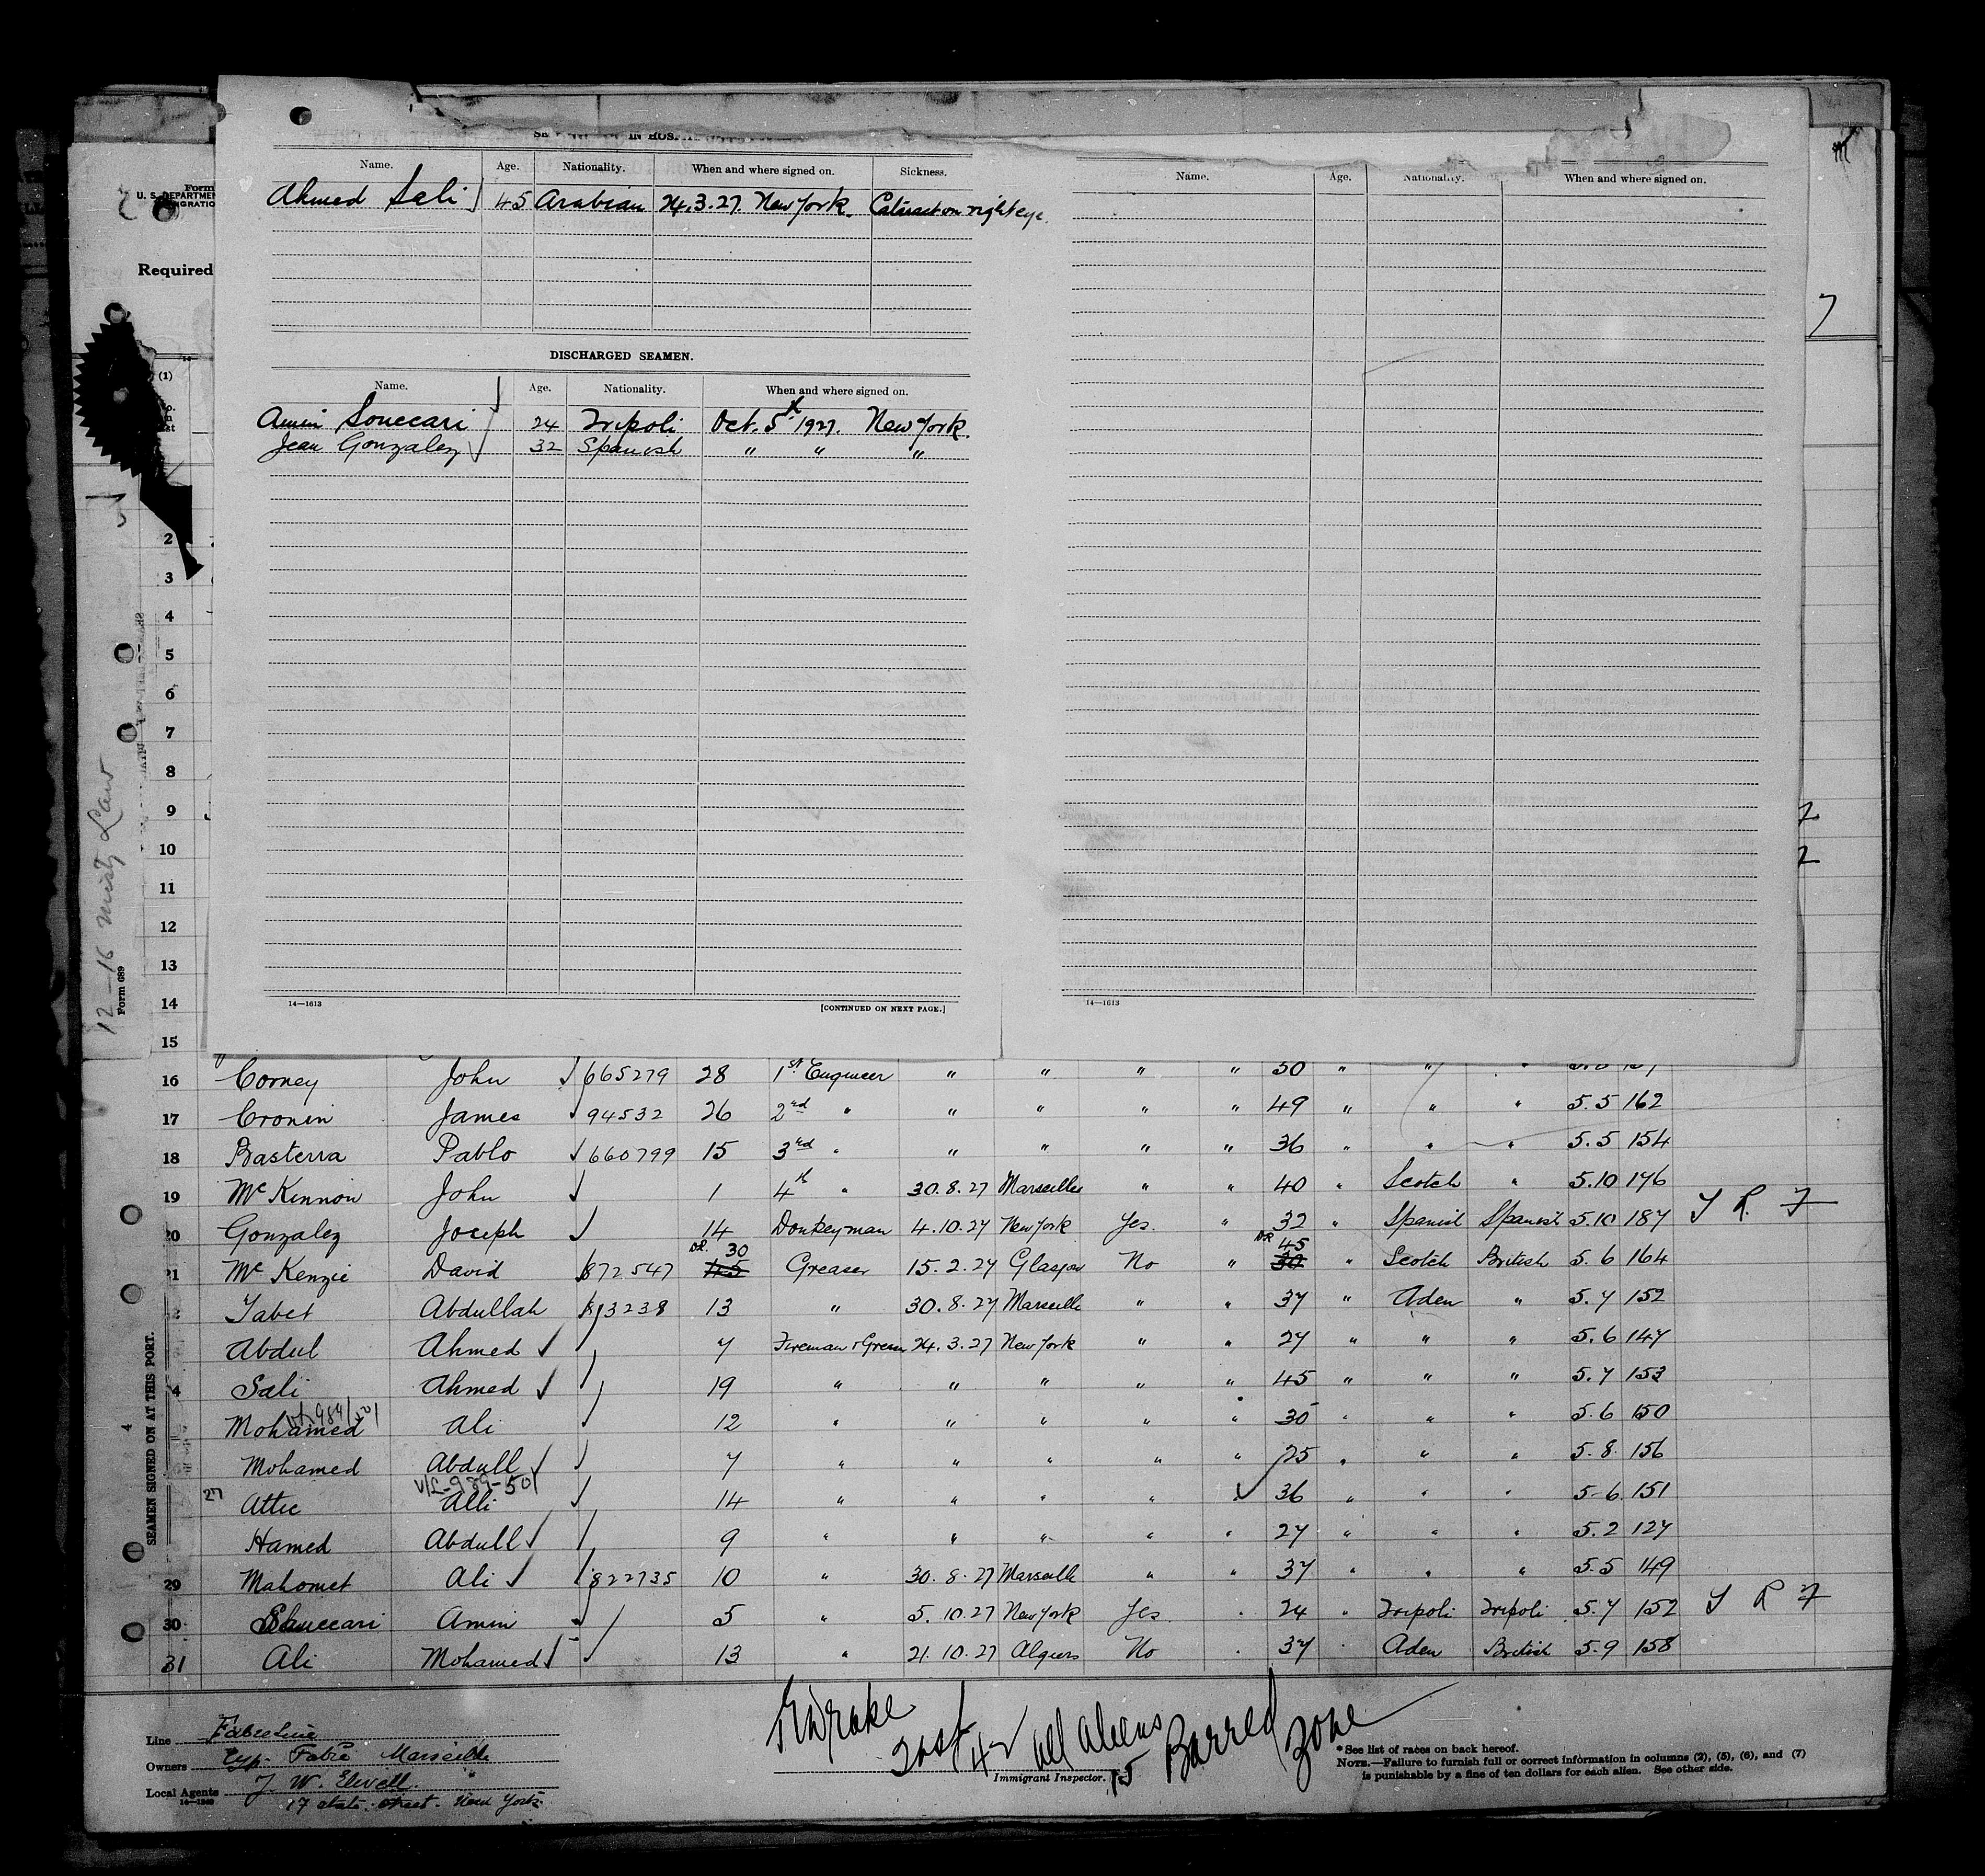 IN HOS
Name. Age. Nationality. When and where signed on. Sickness.
Ahmed Sali 45 Arabian 24.3.27 New York. Cataract on right eye.
DISCHARGED SEAMEN.
Name. Age. Nationality. When and where signed on.
Amin Souccari 24 Tripoli Oct. 5th 1927. New York.
Jean Gonzalez 32 Spanish " " "
14—1613 [CONTINUED ON NEXT PAGE.]
Name. Age. Nationality. When and where signed on.
14—1613
Form
U. S. DEPARTMEN
IGRATIO
Required
14
(1)
2
3
4
5
6
7
8
9
10
11
12
13
14
15
12-16 Law
Form 689
4 SEAMEN SIGNED ON AT THIS PORT.
16 Corney John 665279 28 1st Engineer " " " " 30 " " "
17 Cronin James 94532 26 2nd " " " " " 49 " " " 5.5 162
18 Basterra Pablo 660799 15 3rd " " " " " 36 " " " 5.5 154
19 Mc Kinnon John 1 4th " 30.8.27 Marseilles " " 40 " Scotch " 5.10 176
20 Gonzalez Joseph 14 Donkeyman 4.10.27 New York Yes. " 32 " Spanish Spanish 5.10 187
21 Mc Kenzie David 872547 30 Greaser 15.2.27 Glasgow No " 45 " Scotch British 5.6 164
Tabet Abdullah 813238 13 " 30.8.27 Marseille " " 37 " Aden " 5.7 152
Abdul Ahmed 7 Fireman & Greaser 24.3.27 New York " " 27 " " " 5.6 147
4 Sali Ahmed 19 " " " " " 45 " " " 5.7 153
Mohamed Ali 12 " " " " " 30 " " " 5.6 150
Mohamed Abdull 7 " " " " " 25 " " " 5.8 156
27 Attie Alli 14 " " " " " 36 " " " 5-6 151
Hamed Abdull 9 " " " " " 27 " " " 5.2 127
29 Mahomet Ali 822735 10 " 30.8.27 Marseille " " 37 " " " 5.5 149
30 Souccari Amin 5 " 5.10.27 New York Yes. " 24 " Tripoli Tripoli 5.7 152
31 Ali Mohamed 13 " 21.10.27 Algiers No " 37 " Aden British 5.9 158
Line Fabre Line
Owners Cyp. Fabre Marseille
Local Agents J. W. Elwell. "
14—1240
17 State Street. New York.
all aliens
15 Barred Zone
Immigrant Inspector.
*See list of races on back hereof.
NOTE.—Failure to furnish full or correct information in columns (2), (5), (6), and (7)
is punishable by a fine of ten dollars for each alien. See other side.